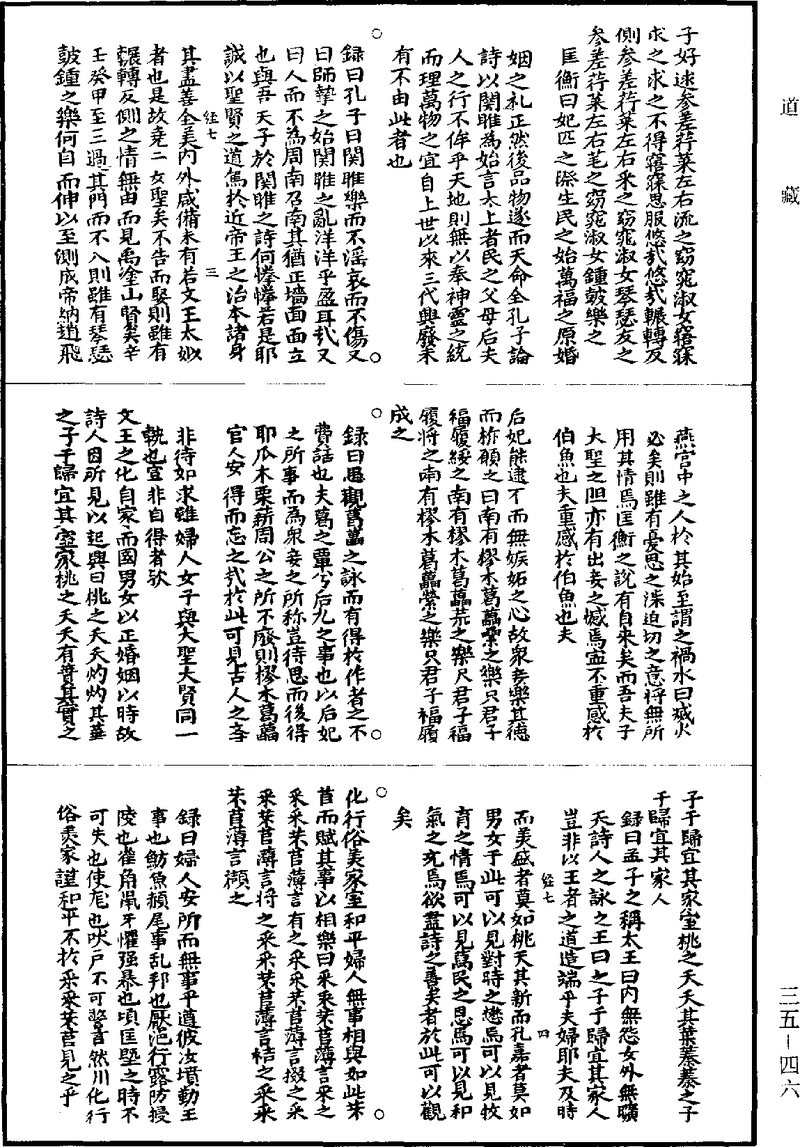 道藏
子好逑參差荇菜左右流之窈窕淑女寤寐
求之求之不得寤寐思服悠哉悠哉輾轉反
側參差荇菜左右采之窈窕淑女琴瑟友之
參差荇菜左右芼之窈窕淑女鍾皷樂之
匡衡曰妃匹之際生民之始萬福之原婚
姻之礼正然後品物遂而天命全孔子論
詩以関雎為始言太上者民之父母后夫
人之行不侔乎天地則無以奉神靈之統
而理萬物之宜自上世以來三代興廢未
有不由此者也
○
録曰孔子曰関雎樂而不滛哀而不傷又
曰師摯之始関雎之亂洋洋乎盈耳哉又
曰人而不為周南召南其猶正墻面而立
也與吾夫子於関雎之詩何惓惓若是耶
誠以聖賢之道篤於近帝王之治本諸身
經七 三
其盡善全美内外咸備未有若文王太姒
者也是故堯二女聖矣不告而娶則雖有
輾轉反側之情無由而見禹塗山賢矣辛
壬癸甲至三過其門而不入則雖有琴瑟
皷鍾之樂何自而伸以至側成帝納趙飛
燕宫中之人於其始至謂之禍水曰滅火
必矣則雖有憂思之深迫切之意将無所
用其情焉匡衡之說有自来矣而吾夫子
大聖之旦亦有出妻之憾焉寧不重感於
伯魚也夫重感於伯魚也夫
后妃能逮下而無嫉妬之心故衆妾樂其德
而祈願之曰南有樛木葛藟纍之樂只君子
福履綏之南有樛木葛藟荒之樂只君子福
履將之南有樛木葛藟縈之樂只君子福履
成之
○
録曰愚觀葛藟之詠而有得於作者之不
費話也夫葛之覃兮后九之事也以后妃
之所事而為衆妾之所称豈待思而後得
耶瓜木栗薪周公之所不廢則樛木葛藟
官人安得而忘之哉於此可見古人之言
非待如求雖婦人女子與大聖大賢同一
執也宜非自得者欤
文王之化自家而國男女以正婚姻以時故
詩人因所見以起興曰桃之夭夭灼灼其華
之子于歸宜其室家桃之夭夭有蕡其實之
子于歸宜其家室桃之夭夭其葉蓁蓁之子
于歸宜其家人
録曰孟子之稱太王曰内無怨女外無曠
夫詩人之詠之王曰之子于歸宜其家人
豈非以王者之道造端乎夫婦耶夫及時
經七 四
而美盛者莫如桃夭其新而孔嘉者莫如
男女于此可以見對時之懋焉可以見牧
育之情焉可以見萬民之思焉可以見和
氣之充焉欲盡詩之善矣者於此可以觀
矣
○
化行俗美家室和平婦人無事相與如此芣
苢而賦其事以相樂曰采采芣苢薄言采之
采采芣苢薄言有之采采芣苢薄言掇之采
采芣苢薄言捋之采采芣苢薄言袺之采采
芣苢薄言襭之
録曰婦人安所而無事乎遵彼汝墳勤王
事也魴魚赬尾事乱邦也厭浥行露防授
陵也雀角鼠牙懼强暴也頃匡塈之時不
可失也使尨也吠户不可警言然川化行
俗美家謹和平不於采采芣苢見之乎
三五-四六